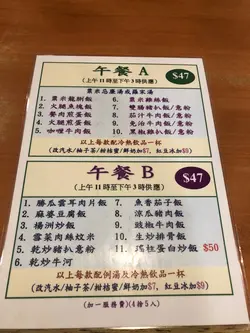 午餐 A $47
(上午11時至下午3時供應)
粟米忌廉湯或羅宋湯
1. 粟米龍脷飯
2. 火腿魚塊飯
3. 餐肉煎蛋飯
4. 火腿煎蛋飯
5. 咖喱牛肉飯
6. 粟米雞絲飯
7. 雙腸豬扒飯/意粉
8. 茄汁牛肉飯/意粉
9. 免治牛肉飯/意粉
10. 黑椒雞扒飯/意粉
以上每款配冷熱飲品一杯
(改汽水/柚子茶/柑桔蜜/鮮奶加$7, 紅豆冰加$9)
午餐 B $47
(上午11時至下午3時供應)
1. 勝瓜雲耳肉片飯
2. 麻婆豆腐飯
3. 楊洲炒飯
4. 雪菜肉絲炆米
5. 乾炒豬扒意粉
6. 乾炒牛河
7. 魚香茄子飯
8. 涼瓜豬肉飯
9. 豉椒牛肉飯
10. 生炒排骨飯
11. 馬拉蛋白炒飯 $50
以上每款配例湯及冷熱飲品一杯
(改汽水/柚子茶/柑桔蜜/鮮奶加$7, 紅豆冰加$9)
(加一服務費)(4捨5入)